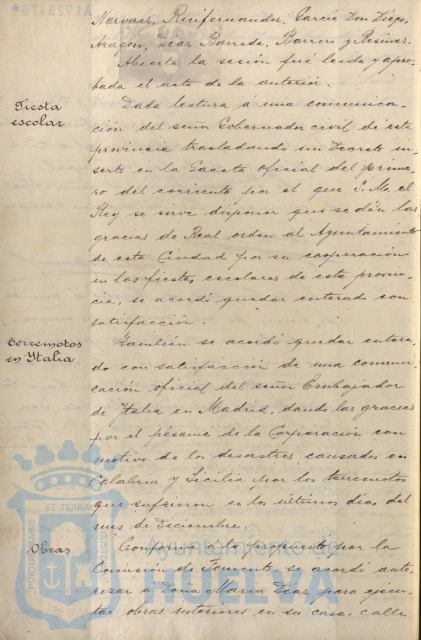 A1.723176
Narvaez, Rinifernandez, García Don Diego,
Aragon, Diaz Barreda, Barrero y Resinas.
Abierta la sesión fué leida y apro-
bada el acta de la anterior.
Fiesta
escolar
Dada lectura á una comunica-
ción del señor Gobernador civil de esta
provincia trasladando un Decreto in-
serto en la Gaceta oficial del prime-
ro del corriente por el que S. M. el
Rey se sirve disponer que se dén las
gracias de Real orden al Ayuntamiento
de esta Ciudad por su cooperación
en las fiestas escolares de esta provin-
cia, se acordó quedar enterado con
satisfacción.
Terremotos
en Italia
También se acordó quedar entera-
do con satisfacción de una comuni-
cación oficial del señor Embajador
de Italia en Madrid, dando las gracias
por el pésame de la Corporación con
motivo de los desastres causados en
Calabria y Sicilia por los terremotos
que sufrieron en los últimos dias del
mes de Diciembre.
Obras
Conforme á lo propuesto por la
Comisión de Fomento, se acordó auto-
rizar a Doña Maria Diaz para ejecu-
tar obras interiores en su casa calle
PORTUS MARIS ET TERRAE CUSTODIA
Ayuntamiento de
HUELVA